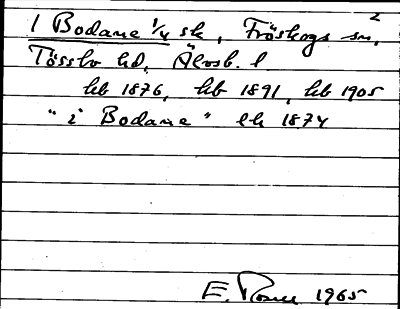 2
1 Bodane 1/4 sk, Fröskogs sn,
Tössbo hd, Älvsb. l
hb 1876, hb 1891, hb 1905
"i Bodane" ek 1874
E. 1965